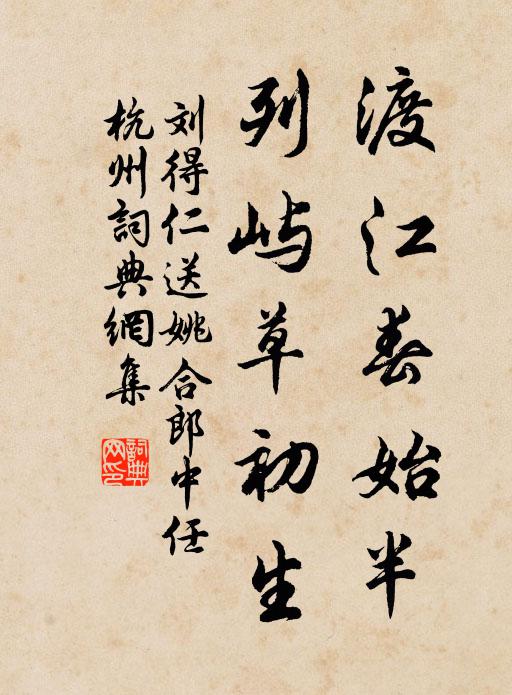 渡江春始半
列屿草初生
刘得仁送姚合郎中任
杭州詞典網集
詞典网印